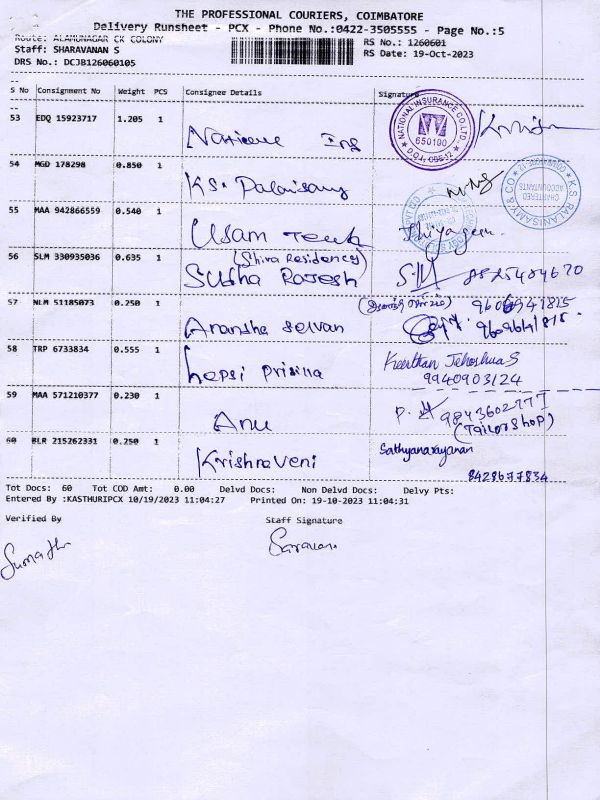 THE PROFESSIONAL COURIERS, COIMBATORE
Delivery Runsheet - PCX - Phone No.:0422-3505555 - Page No.:5
Route: ALAMUNAGAR CK COLONY
RS No.: 1260601
Staff: SHARAVANAN S
RS Date: 19-Oct-2023
DRS No.: DCJB126060105
S No Consignment No Weight PCS Consignee Details Signature
53 EDQ 15923717 1.205 1
NATIONAL INSURANCE CO.LTD.
650100
D.O.4, CBE-12
54 MGD 178298 0.850 1
K.S. Palanisamy
K.S. PALANISAMY & CO
CHARTERED ACCOUNTANTS
55 MAA 942866559 0.540 1
Thiyagu
56 SLM 330935036 0.635 1
(Shiva Residency)
Subha Rajesh
8525484670
57 NLM 51185073 0.250 1
Anantha Selvan
9609641815
9609641815
58 TRP 6733834 0.555 1
hepsi prisilla
Keerthan Jehoshua S
9940903124
59 MAA 571210377 0.230 1
Anu
9843602777
(Tailor shop)
60 BLR 215262331 0.250 1
Krishnaveni
Sathyanarayanan
8428677834
Tot Docs: 60 Tot COD Amt: 0.00 Delvd Docs: Non Delvd Docs: Delvy Pts:
Entered By :KASTHURIPCX 10/19/2023 11:04:27 Printed On: 19-10-2023 11:04:31
Verified By
Staff Signature
Sumathi
Saravanan